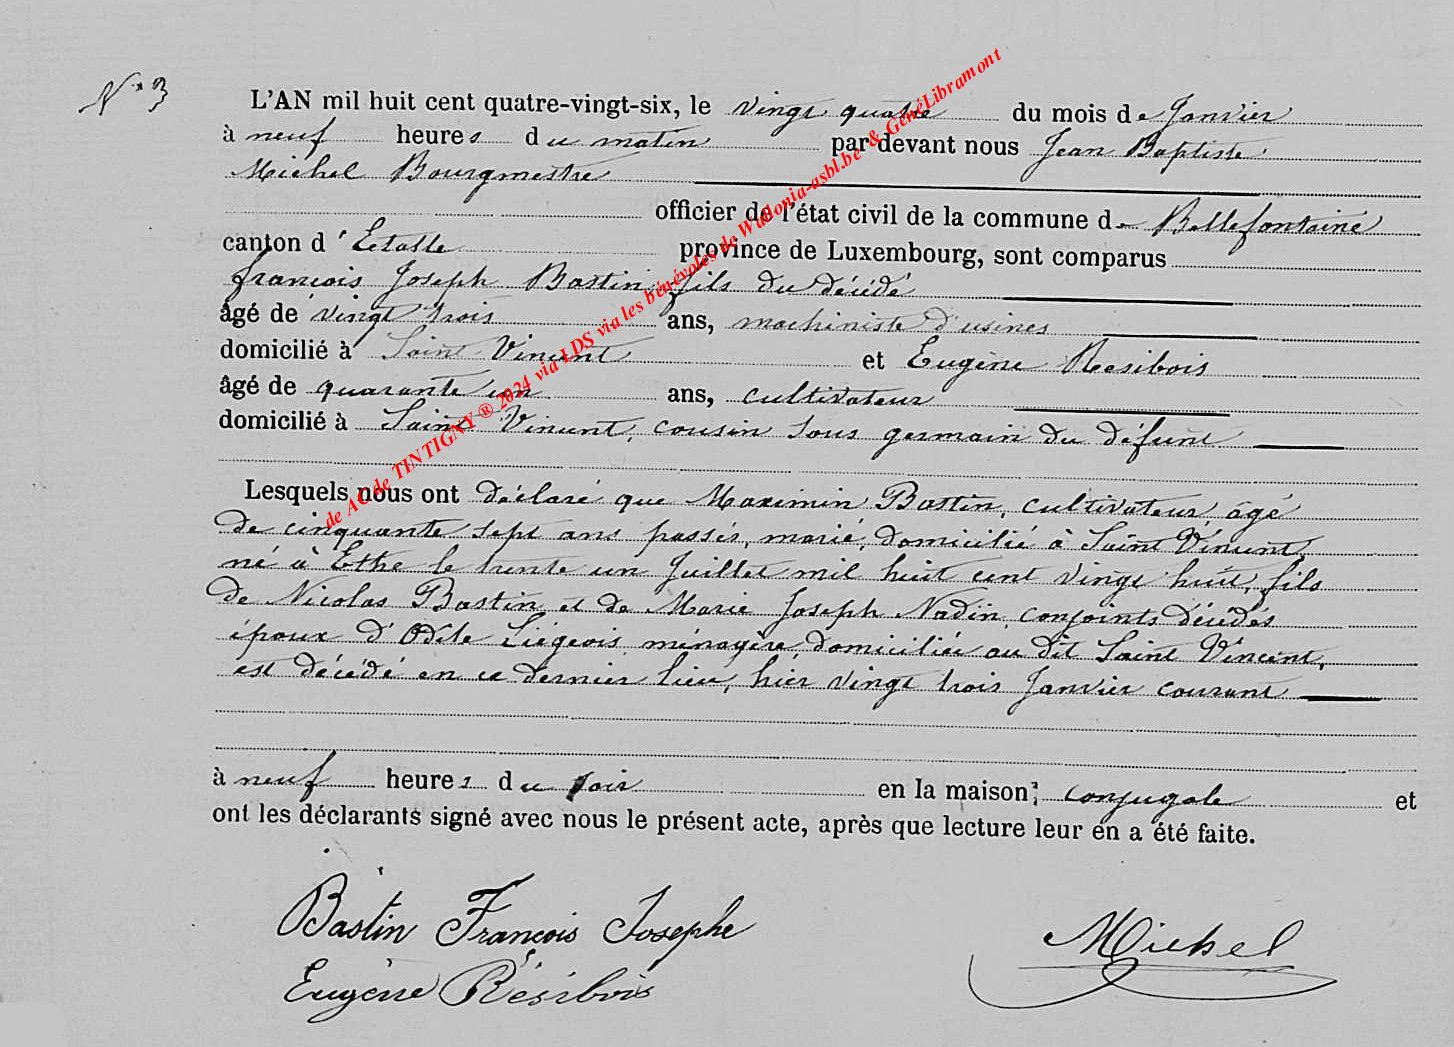 N° 3
L'AN mil huit cent quatre-vingt-six, le vingt quatre du mois de Janvier
à neuf heures du matin par devant nous Jean Baptiste
Michel Bourgmestre
officier de l'état civil de la commune de Bellefontaine
canton d'Etalle province de Luxembourg, sont comparus
françois Joseph Bastin, fils du décédé
âgé de vingt trois ans, machiniste d'usines
domicilié à Saint Vincent et Eugène Résibois
âgé de quarante un ans, cultivateur
domicilié à Saint Vincent, cousin sous germain du défunt
Lesquels nous ont déclaré que Maximin Bastin, cultivateur, âgé
de cinquante sept ans passés, marié, domicilié à Saint Vincent,
né à Ethe le trente un Juillet mil huit cent vingt huit, fils
de Nicolas Bastin et de Marie Joseph Nadin, conjoints décédés
époux d'Odile Liégeois, ménagère, domiciliée au dit Saint Vincent,
est décédé en ce dernier lieu, hier vingt trois Janvier courant
à neuf heures du soir en la maison conjugale et
ont les déclarants signé avec nous le présent acte, après que lecture leur en a été faite.
Bastin François Josephe
Michel
Eugène Résibois
de AC de TINTIGNY ® 2024 via LDS via les bénévoles de Wallonia-asbl.be & GenéLibramont